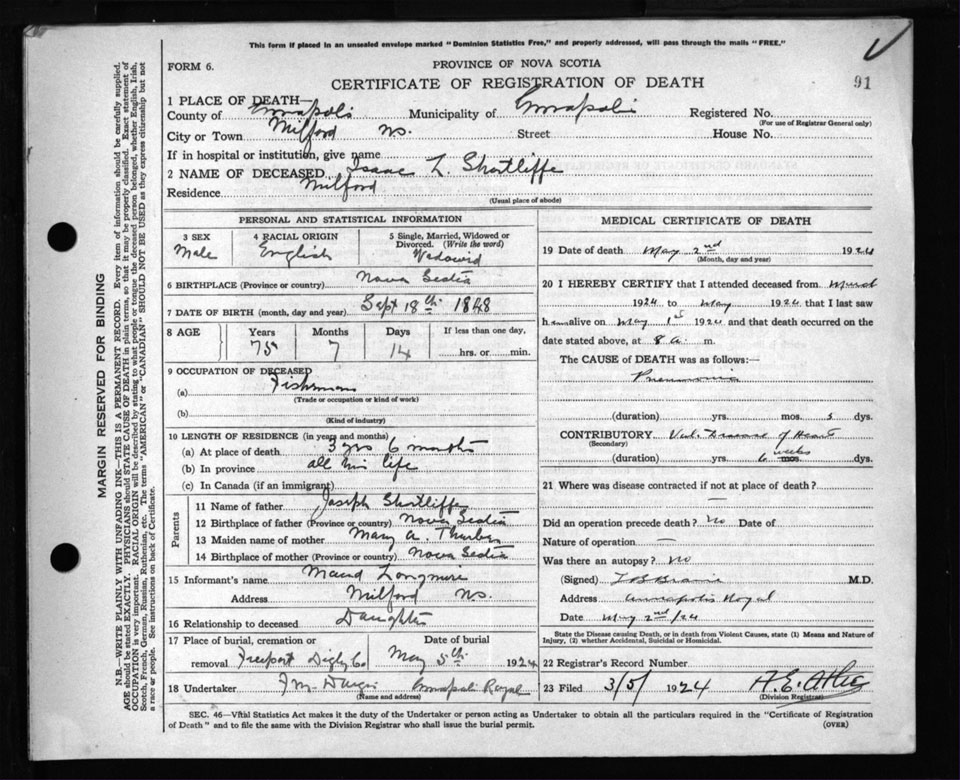 This form if placed in an unsealed envelope marked "Dominion Statistics Free," and properly addressed, will pass through the mails "FREE."
FORM 6.
PROVINCE OF NOVA SCOTIA
CERTIFICATE OF REGISTRATION OF DEATH
91
1 PLACE OF DEATH—
County of Annapolis Municipality of Annapolis Registered No.
(For use of Registrar General only)
City or Town Milford N.S. Street House No.
If in hospital or institution, give name
2 NAME OF DECEASED Isaac L. Shortliffe
Residence Milford
(Usual place of abode)
PERSONAL AND STATISTICAL INFORMATION
3 SEX 4 RACIAL ORIGIN 5 Single, Married, Widowed or Divorced. (Write the word)
Male English Widowed
6 BIRTHPLACE (Province or country) Nova Scotia
7 DATE OF BIRTH (month, day and year) Sept 18th 1848
8 AGE Years Months Days If less than one day,
75 7 14 hrs. or min.
9 OCCUPATION OF DECEASED
(a) Fisherman
(Trade or occupation or kind of work)
(b)
(Kind of industry)
10 LENGTH OF RESIDENCE (in years and months)
(a) At place of death 3 yrs 6 months
(b) In province all his life
(c) In Canada (if an immigrant)
Parents
11 Name of father Joseph Shortliffe
12 Birthplace of father (Province or country) Nova Scotia
13 Maiden name of mother Mary A. Thurber
14 Birthplace of mother (Province or country) Nova Scotia
15 Informant's name Maud Longmire
Address Milford N.S.
16 Relationship to deceased Daughter
17 Place of burial, cremation or removal Freeport Digby Co Date of burial May 5th 1924
18 Undertaker Annapolis Royal
(Name and address)
MEDICAL CERTIFICATE OF DEATH
19 Date of death May 2nd 1924
(Month, day and year)
20 I HEREBY CERTIFY that I attended deceased from
1924 to May 1924 that I last saw
him alive on May 1st 1924 and that death occurred on the
date stated above, at 8 a. m.
The CAUSE of DEATH was as follows:—
Pneumonia
(duration) yrs. mos. 5 dys.
CONTRIBUTORY Val. Disease of Heart
(Secondary)
(duration) yrs. 6 weeks mos. dys.
21 Where was disease contracted if not at place of death? —
Did an operation precede death? No Date of
Nature of operation —
Was there an autopsy? No
(Signed) M.D.
Address Annapolis Royal
Date May 2nd/24
State the Disease causing Death, or in death from Violent Causes, state (1) Means and Nature of Injury, (2) whether Accidental, Suicidal or Homicidal.
22 Registrar's Record Number
23 Filed 3/5/ 1924
(Division Registrar)
SEC. 46—Vital Statistics Act makes it the duty of the Undertaker or person acting as Undertaker to obtain all the particulars required in the "Certificate of Registration
of Death" and to file the same with the Division Registrar who shall issue the burial permit. (OVER)
MARGIN RESERVED FOR BINDING
N.B.—WRITE PLAINLY WITH UNFADING INK—THIS IS A PERMANENT RECORD. Every item of information should be carefully supplied.
AGE should be stated EXACTLY. PHYSICIANS should STATE CAUSE OF DEATH in plain terms, so that it may be properly classified. Exact statement of
OCCUPATION is very important. RACIAL ORIGIN will be described by stating to what people or tongue the deceased person belonged, whether English, Irish,
Scotch, French, German, Russian, Ruthenian, etc. The terms "AMERICAN" or "CANADIAN" SHOULD NOT BE USED as they express citizenship but not
a race or people. See instructions on back of Certificate.